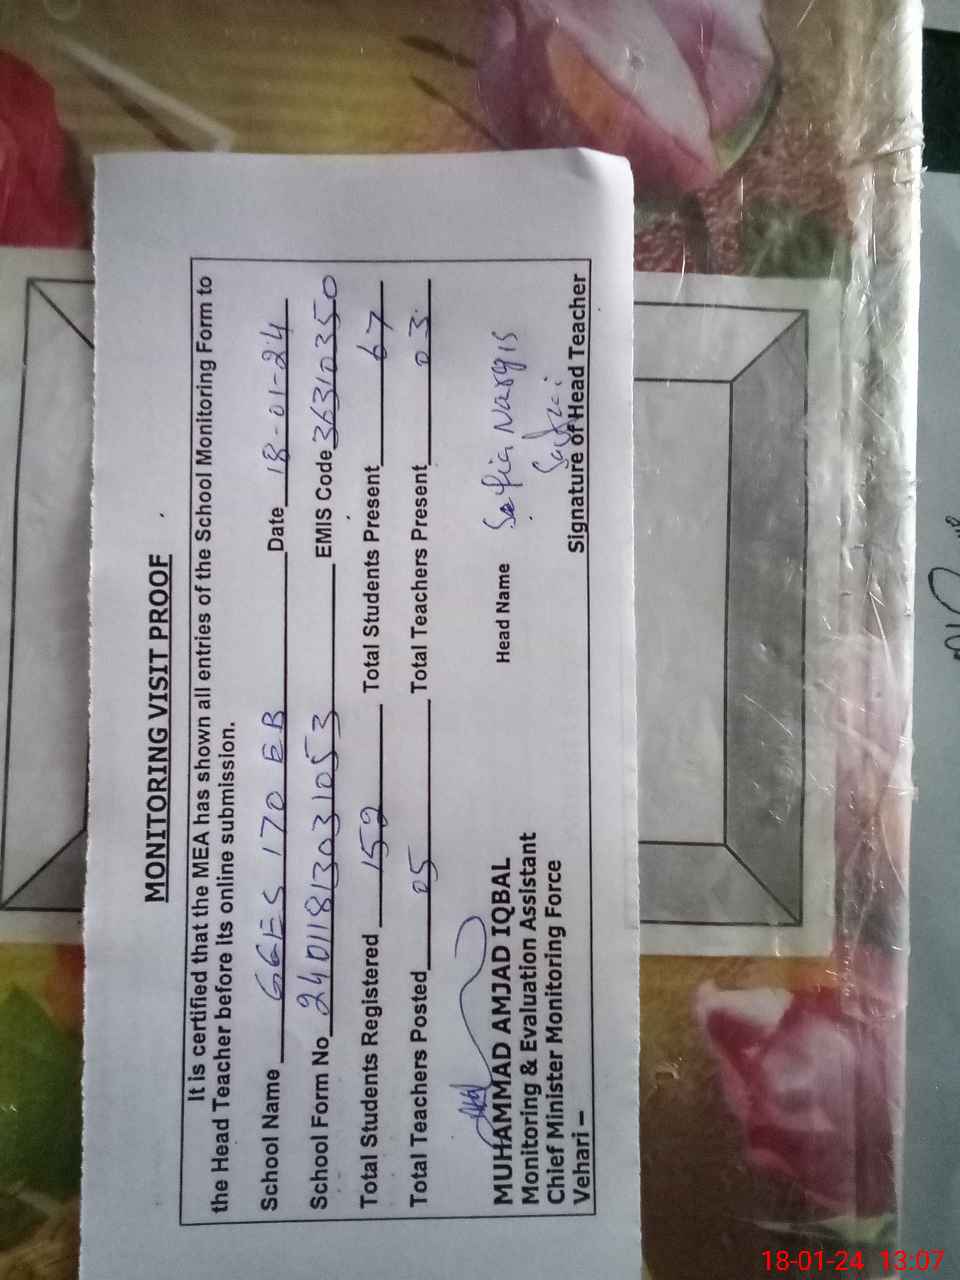 MONITORING VISIT PROOF
It is certified that the MEA has shown all entries of the School Monitoring Form to
the Head Teacher before its online submission.
School Name GGES 170 EB Date 18-01-24
School Form No 24011813031053 EMIS Code 36310350
Total Students Registered 152 Total Students Present 67
Total Teachers Posted 05 Total Teachers Present 03
Head Name Safia Nargis
Safia
MUHAMMAD AMJAD IQBAL
Monitoring & Evaluation Assistant
Chief Minister Monitoring Force
Vehari – Signature of Head Teacher
18-01-24 13:07